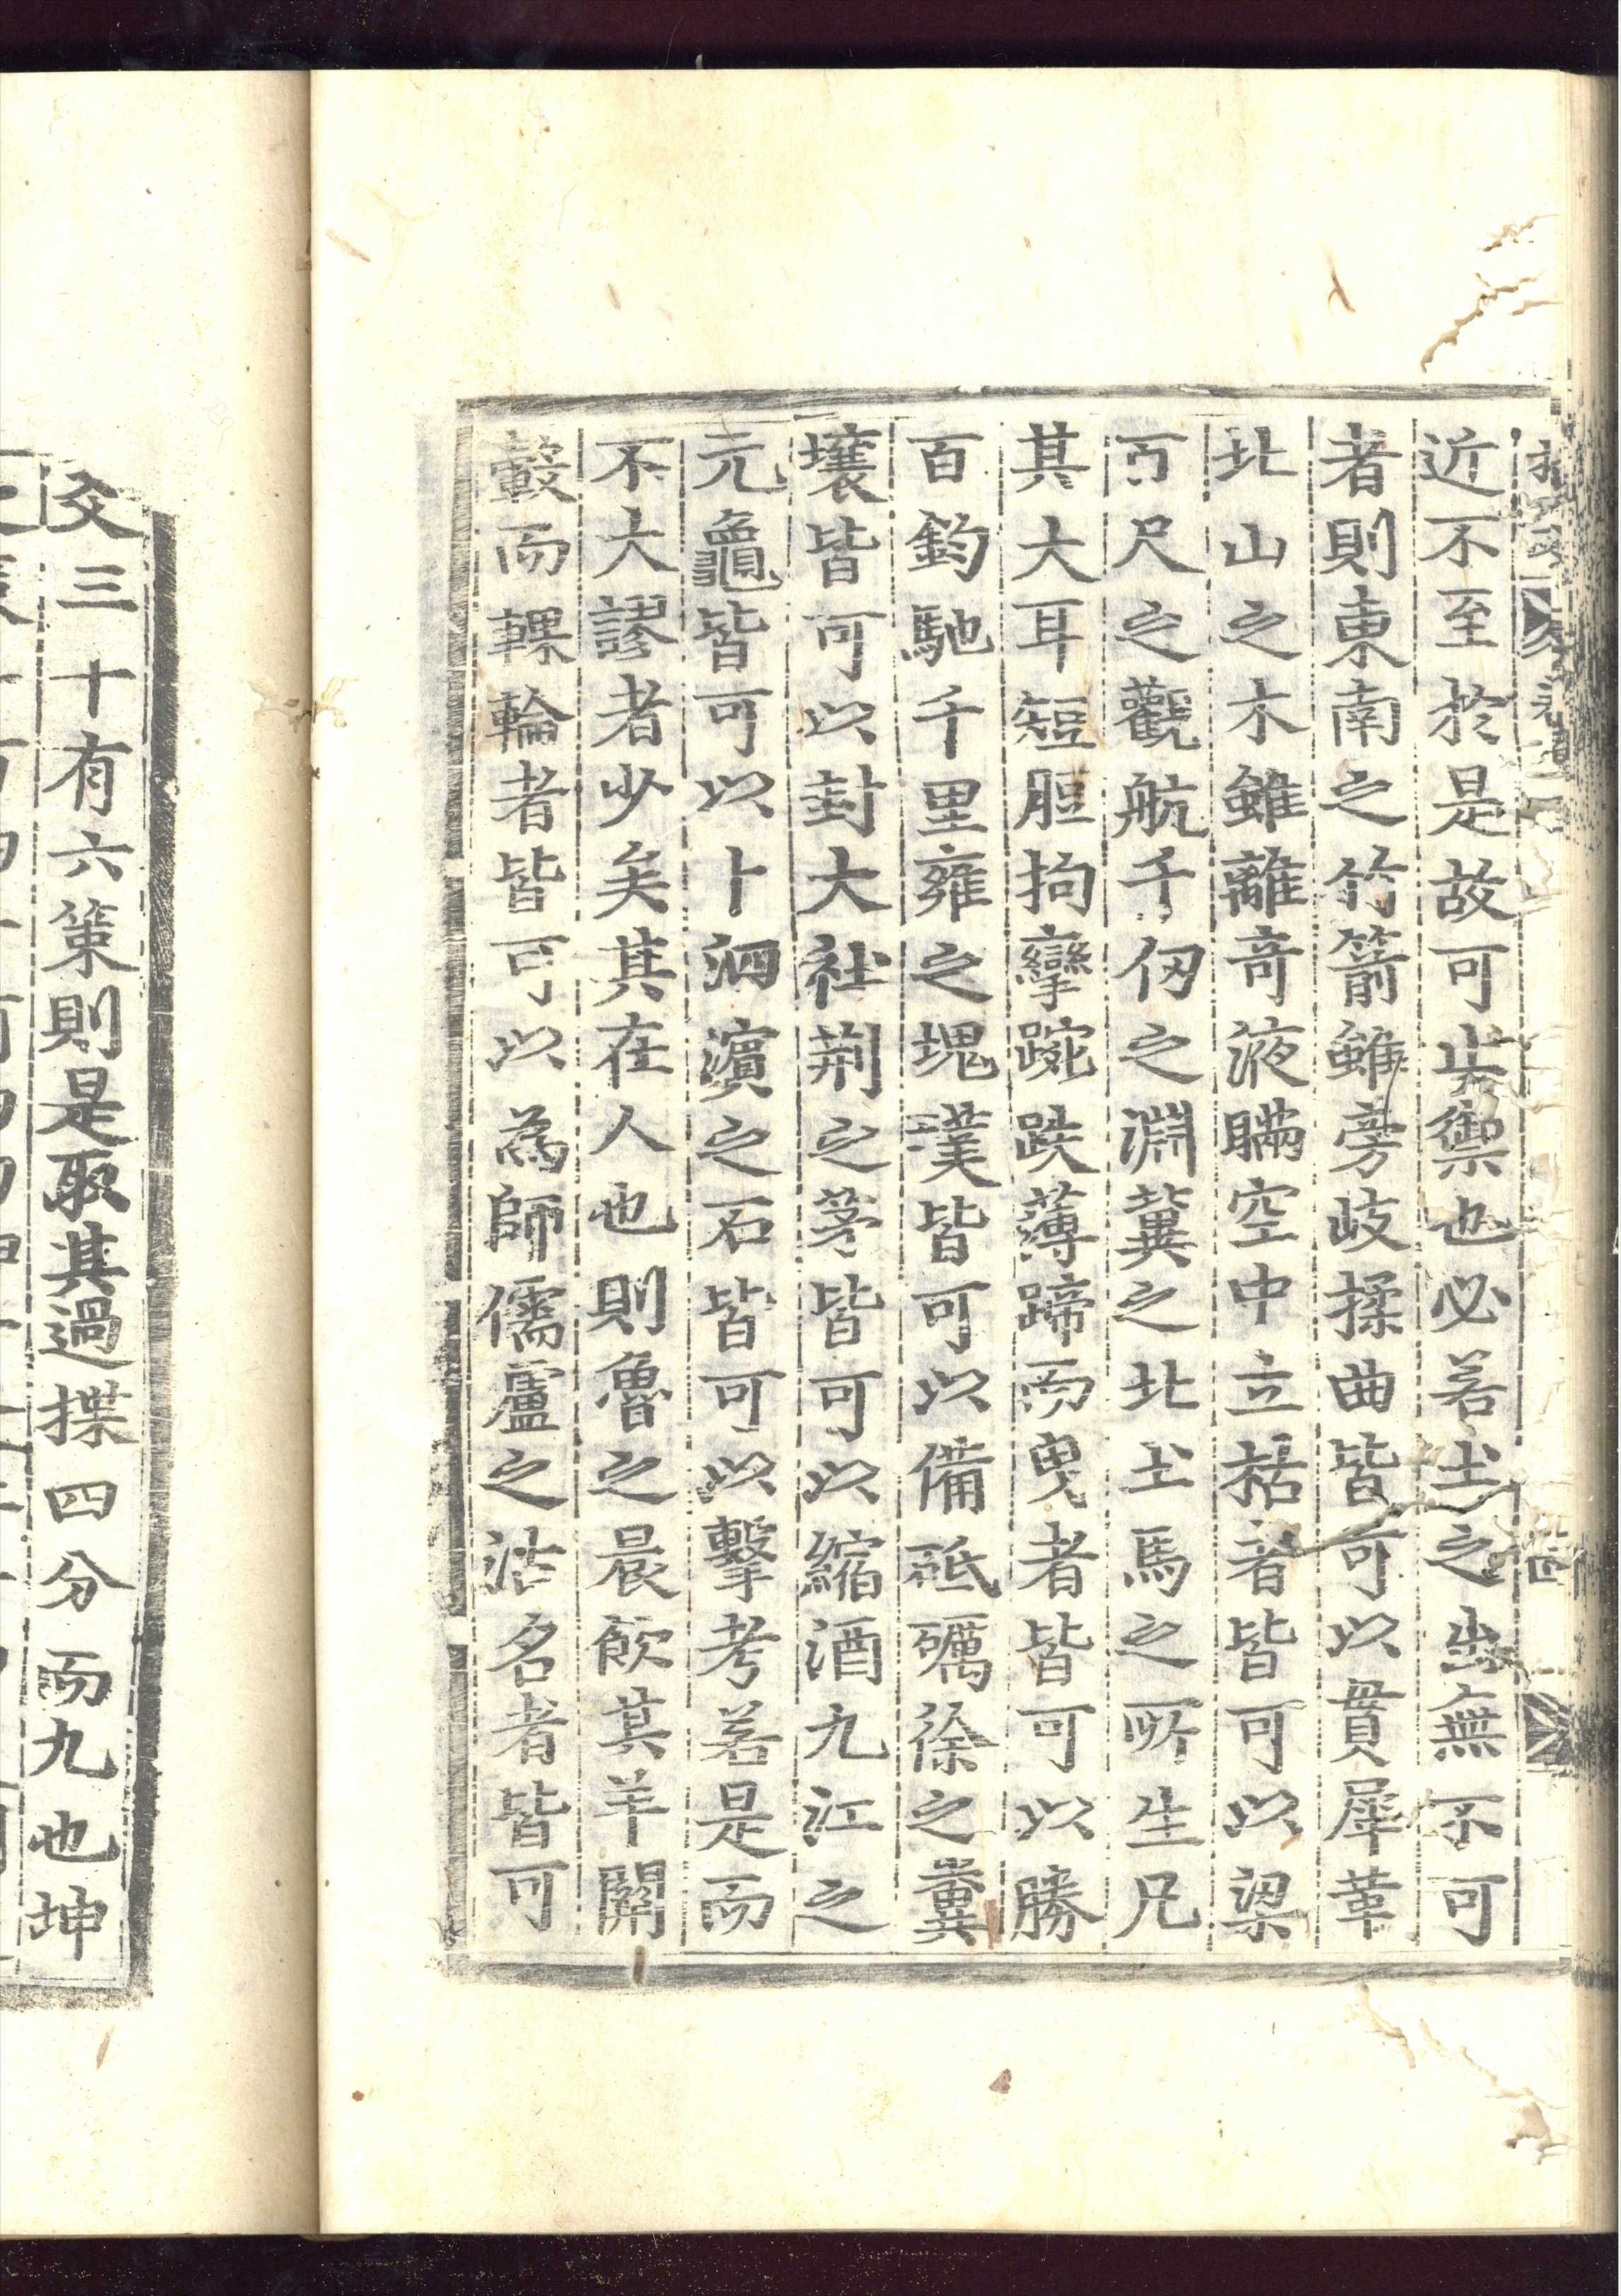 近不至於是故可止禦也必若土之出無不可
者則東南之竹箭雖旁歧揉曲皆可以貫犀革
北山之木雖離奇液瞞空中立枯者皆可以梁
百尺之觀航千仞之淵冀之北土馬之所生凡
其大耳短脰拘攣踠跌薄蹄而曳者皆可以勝
百鈞馳千里雍之塊璞皆可以備砥礪徐之糞
壤皆可以封大社荆之茅皆可以縮酒九江之
元龜皆可以卜泗濱之石皆可以擊考若是而
不大謬者少矣其在人也則魯之晨飲其羊關
轂而輠輪者皆可以為師儒盧之沽名者皆可
爻三十有六策則是取其過揲四分而九也坤